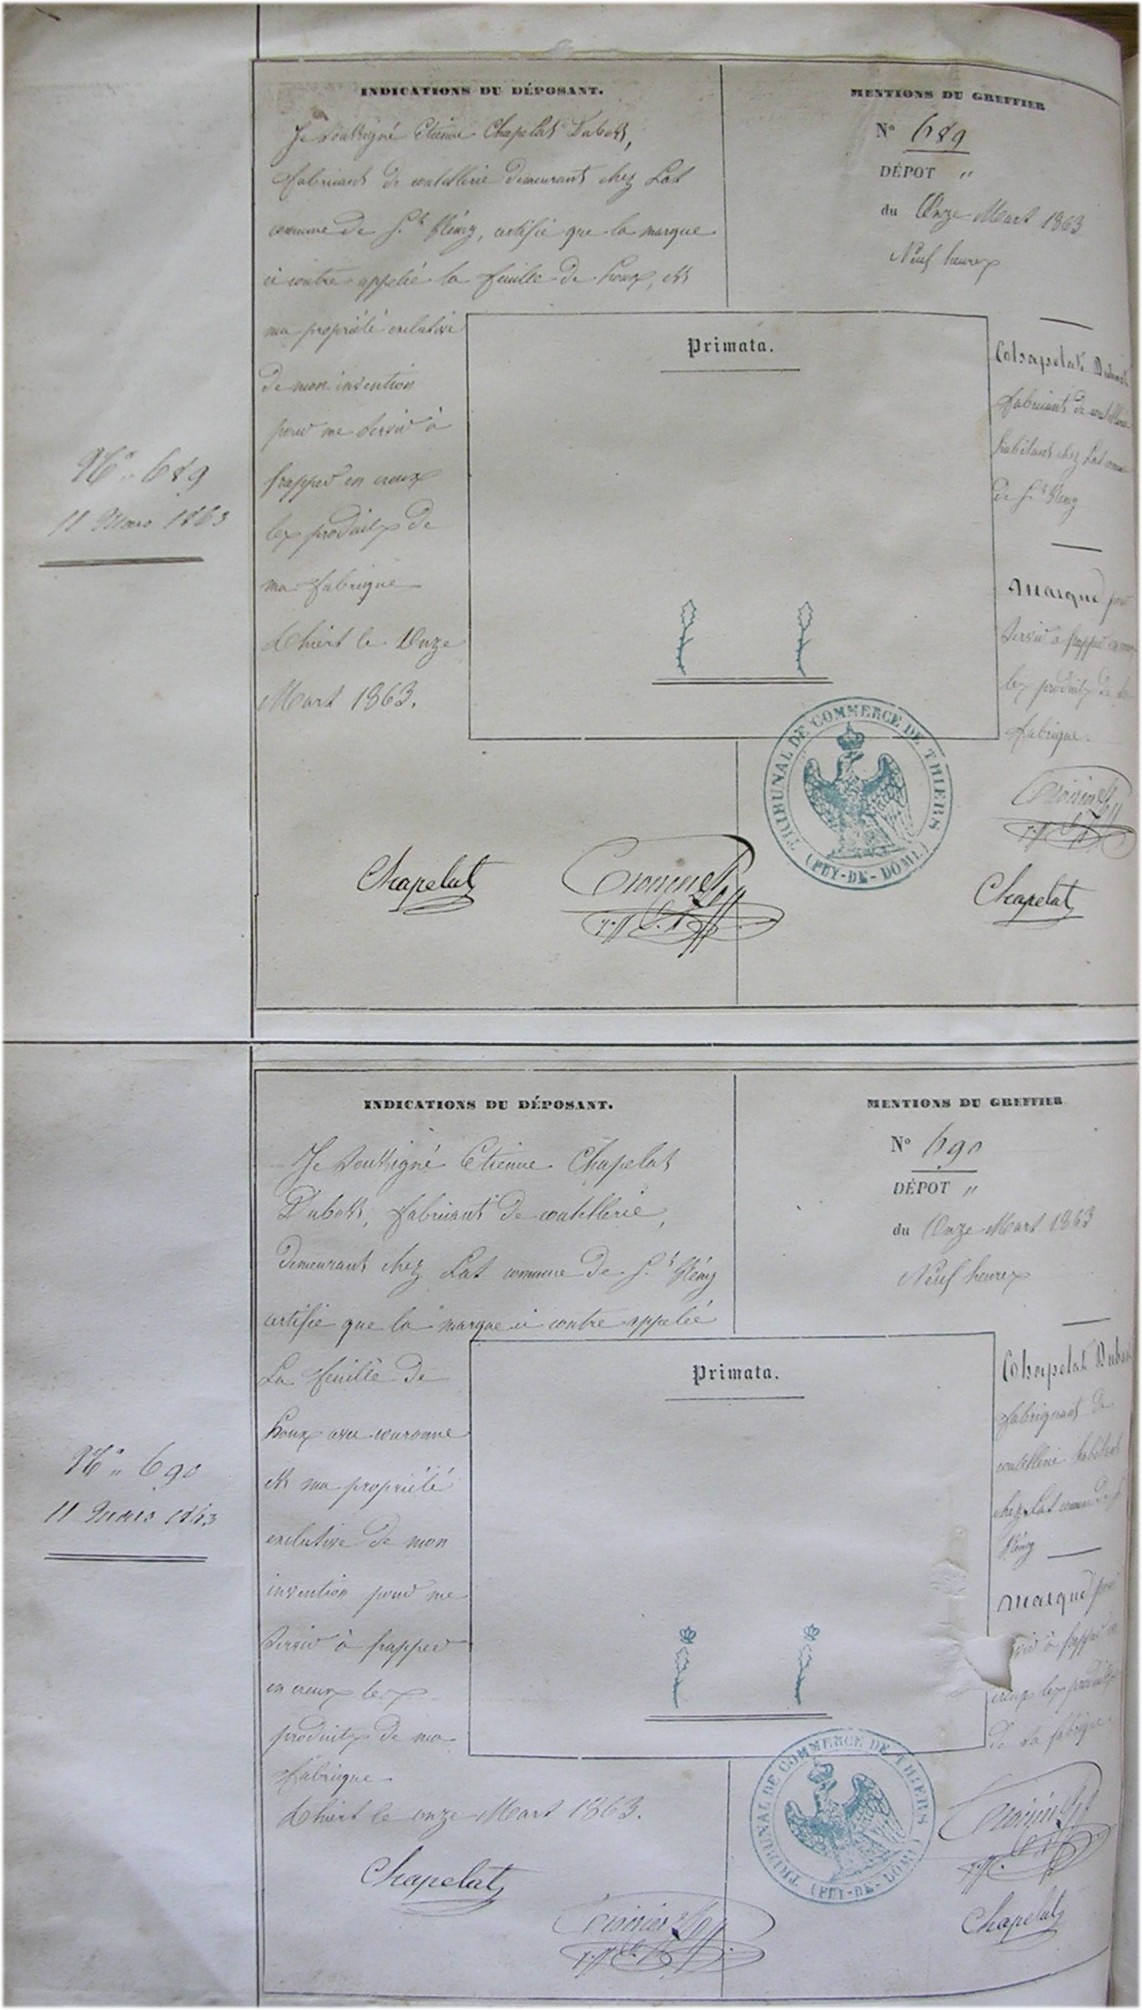 N° 689
11 Mars 1863
INDICATIONS DU DÉPOSANT.
Je soussigné Etienne Chapelat Dubost,
fabricant de coutellerie demeurant chez Lat
commune de St Rémy, certifie que la marque
ci contre appelée la feuille de houx, est
ma propriété exclusive
de mon invention
pour me servir à
frapper en creux
les produits de
ma fabrique
Thiers le Onze
Mars 1863.
Chapelat
MENTIONS DU GREFFIER
N° 689
DÉPOT "
du Onze Mars 1863
Neuf heures
Primata.
Chapelat Dubost
fabricant de coutellerie
habitant chez Lat
de St Rémy
Marque pour
servir à frapper en creux
les produits de
fabrique.
TRIBUNAL DE COMMERCE DE THIERS
(PUY-DE-DOME)
Chapelat
N° 690
11 Mars 1863
INDICATIONS DU DÉPOSANT.
Je soussigné Etienne Chapelat
Dubost, fabricant de coutellerie,
demeurant chez Lat commune de St Rémy
certifie que la marque ci contre appelée
La feuille de
houx avec couronne
est ma propriété
exclusive de mon
invention pour me
servir à frapper
en creux les
produits de ma
fabrique
Thiers le onze Mars 1863.
Chapelat
MENTIONS DU GREFFIER
N° 690
DÉPOT "
du Onze Mars 1863
Neuf heures
Primata.
Chapelat Dubost
fabriquant de
coutellerie habitant
chez Lat commune de St
Rémy
Marque pour
servir à frapper en
creux les produits
de sa fabrique.
TRIBUNAL DE COMMERCE DE THIERS
(PUY-DE-DOME)
Chapelat